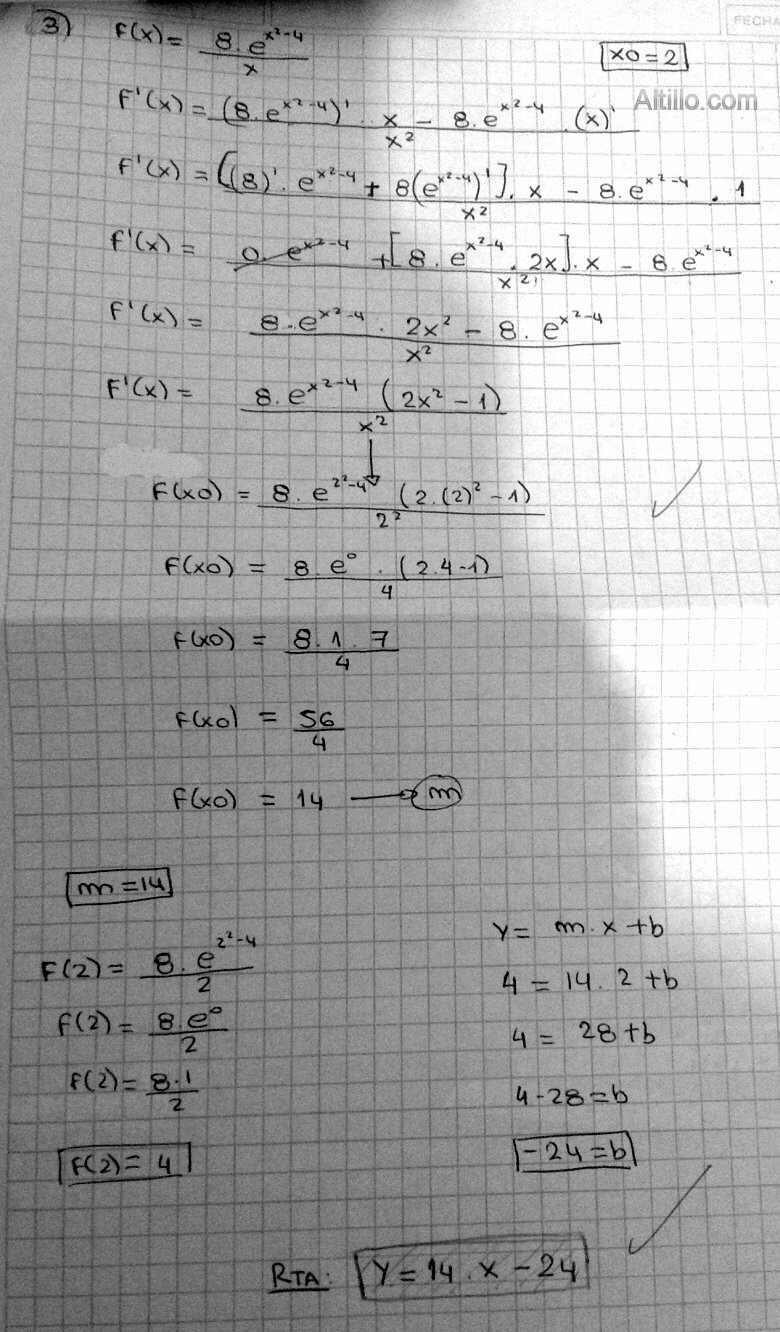 FECHA
3) F(x) = 8.e^(x²-4) / x
x0 = 2
Altillo.com
F'(x) = (8.e^(x²-4))' . x - 8.e^(x²-4) . (x)' / x²
F'(x) = [(8)' . e^(x²-4) + 8(e^(x²-4))'] . x - 8.e^(x²-4) . 1 / x²
F'(x) = 0. e^(x²-4) + [8. e^(x²-4) . 2x] . x - 8.e^(x²-4) / x²
F'(x) = 8.e^(x²-4) . 2x² - 8. e^(x²-4) / x²
F'(x) = 8.e^(x²-4) (2x² - 1) / x²
F(x0) = 8. e^(2²-4) (2.(2)² - 1) / 2²
F(x0) = 8. e^0 . (2.4-1) / 4
F(x0) = 8.1.7 / 4
F(x0) = 56 / 4
F(x0) = 14 → m
m = 14
F(2) = 8.e^(2²-4) / 2
F(2) = 8.e^0 / 2
F(2) = 8.1 / 2
F(2) = 4
y = m.x + b
4 = 14. 2 + b
4 = 28 + b
4 - 28 = b
-24 = b
RTA: y = 14 . x - 24